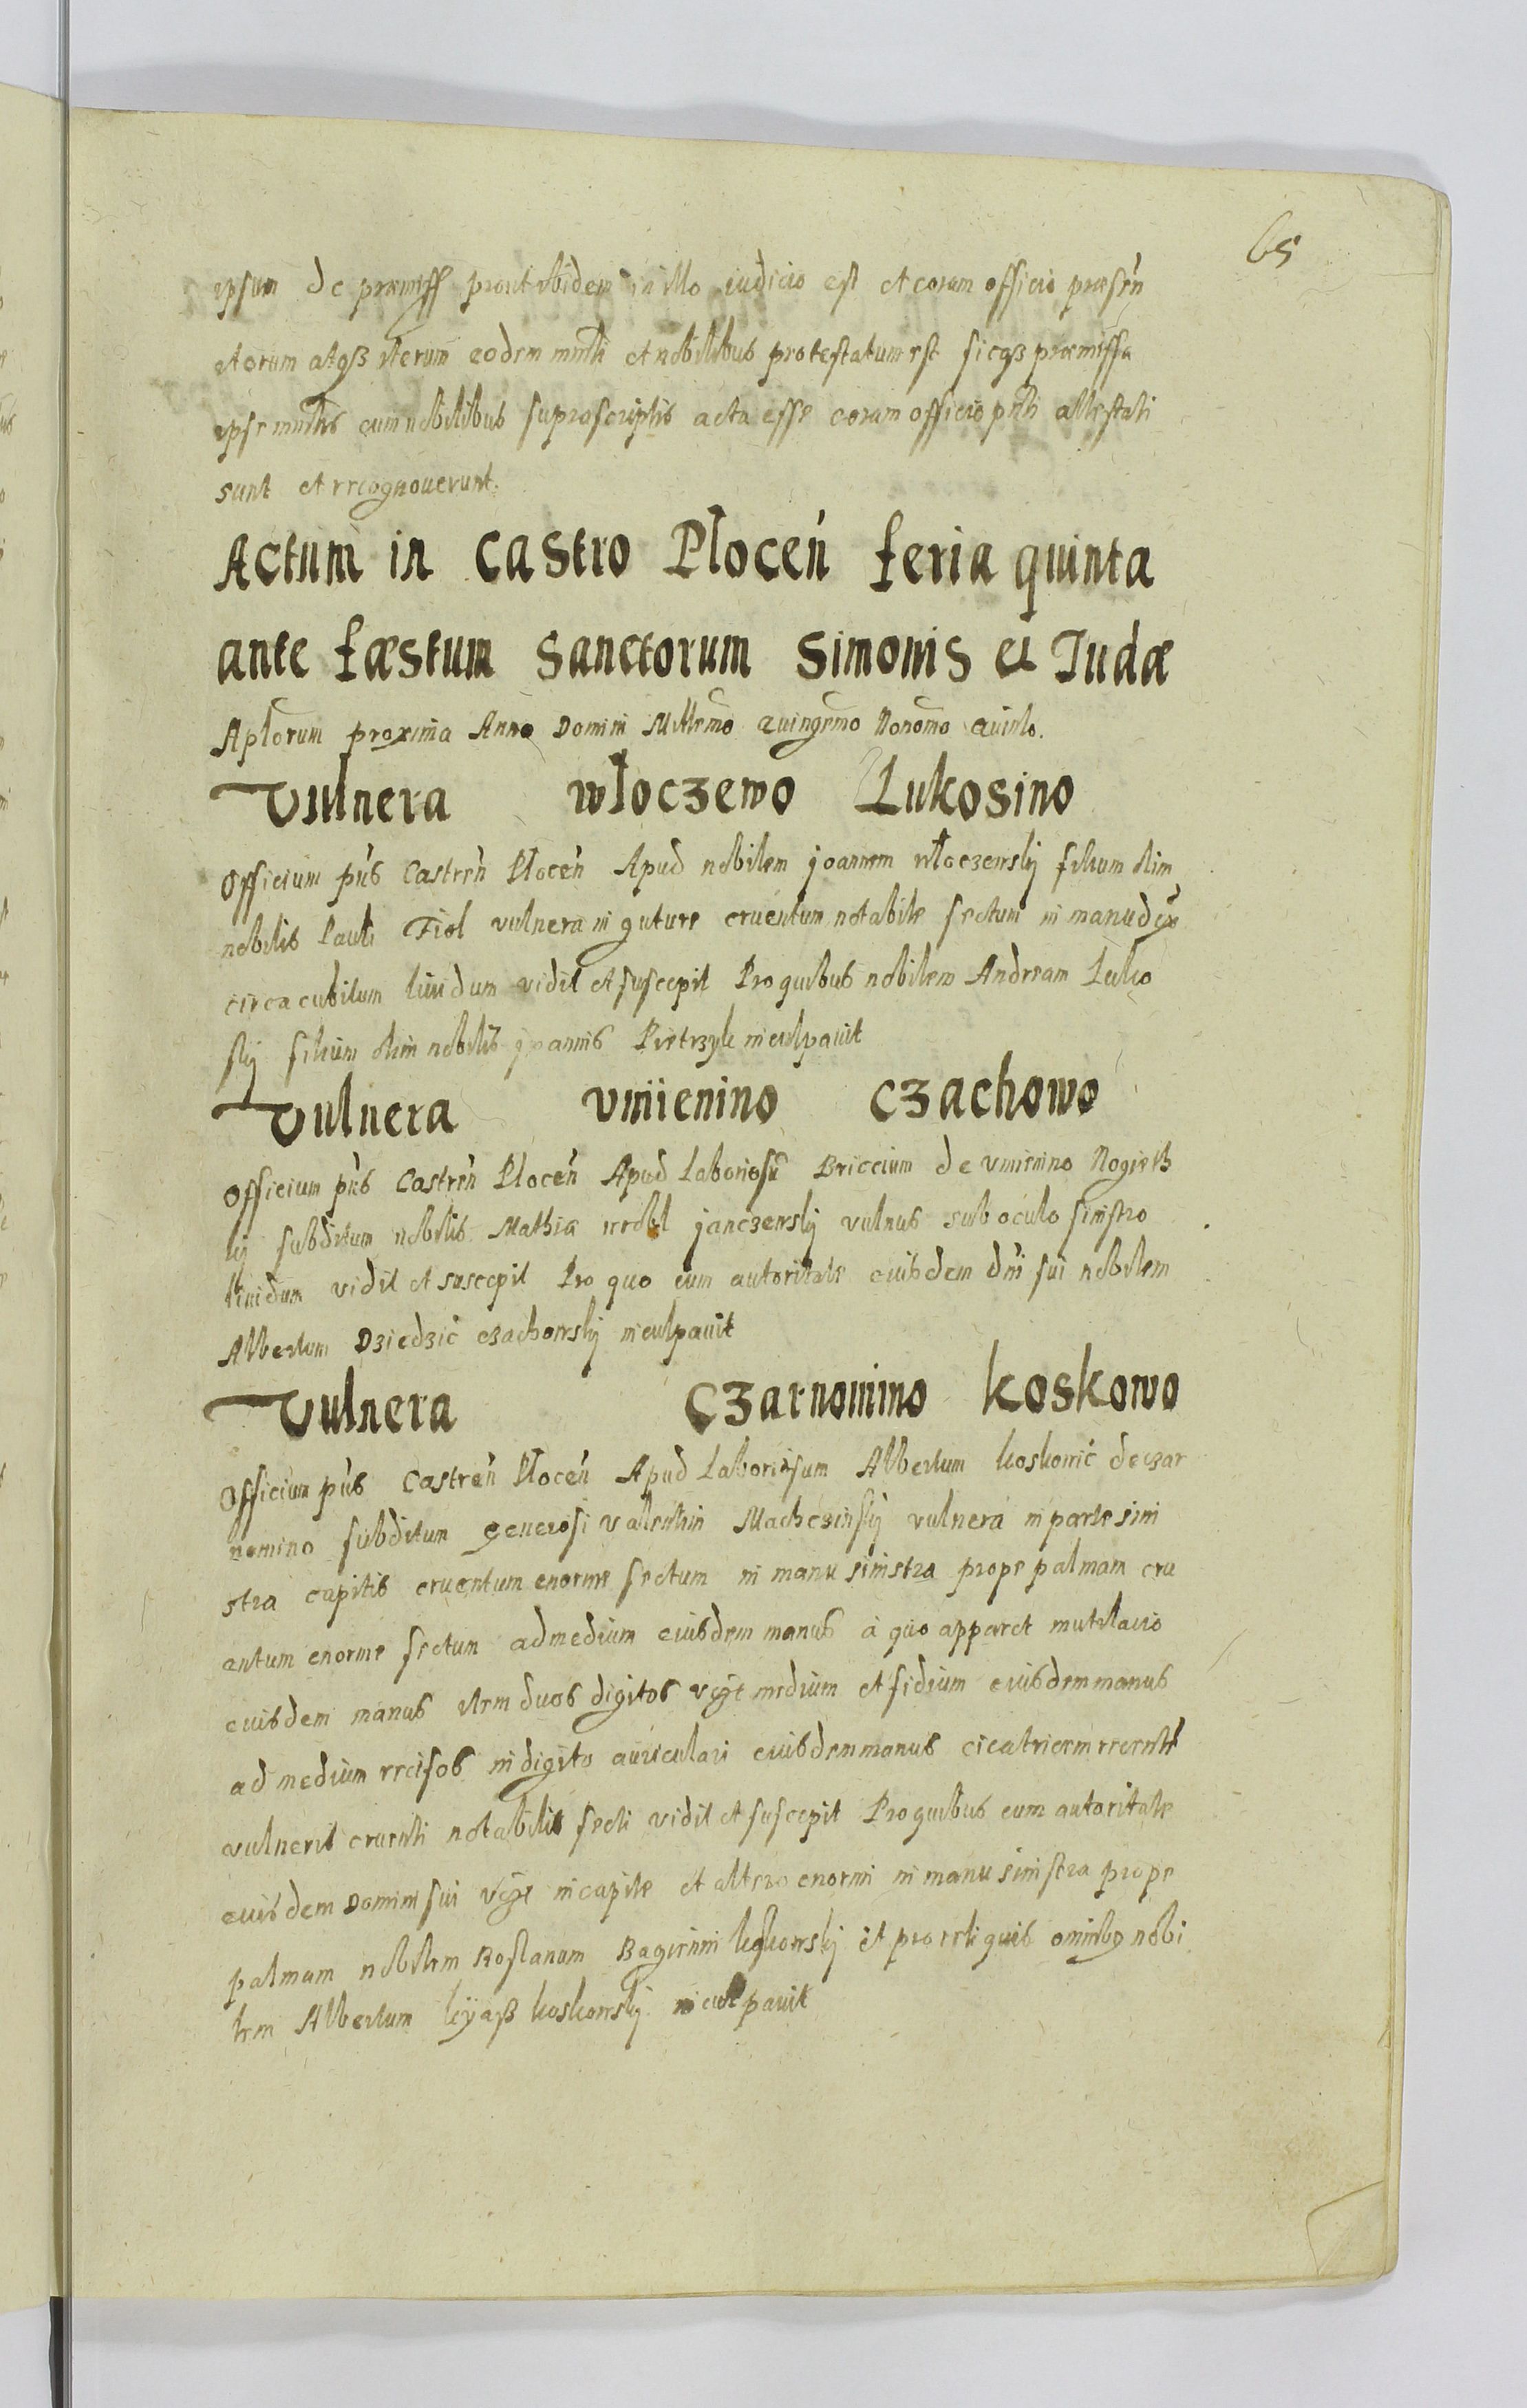 65
ipsum de præmiss prout ibidem in illo iudicio est et coram officio præsen
et coram atqß iterum eodem mnrli et nobilibus protestatum est sicqß præmissa
ipse mnrlis cum nobilibus suprascriptis acta esse coram officio pnti attestati
sunt et recognouerunt.
Actum in Castro Płocen feria quinta
ante fæstum Sanctorum Simonis et Judæ
Aplorum proxima Anno Domini Millemo Quingemo Nonomo Quinto.
Vulnera włoczewo Lukosino
Officium pńs Castreń Płoceń Apud nobilem joannem włoczewskij filium olim
nobilis Pauli Fiol vulnera in guture cruentum notabile sectum in manu dex
circa cubitum liuidum vidit et suscepit Pro quibus nobilem Andream Luko
skij filium olim nobilis joannis Pietrzyk inculpauit
Vulnera vmienino Czachowo
Officium pńs Castreń Płoceń Apud Laboriosu Briccium de vmienino Nogieth
lij subditum nobilis Mathiæ wrobl janczewskij vulnus sub oculo sinistro
liuidum vidit et suscepit Pro quo cum autoritate eiusdem dni sui nobilem
Albertum Dziedzic czachowskij inculpauit
Vulnera Czarnomino koskowo
Officium pńs Castreń Płoceń Apud Laboriosum Albertum koskowic de czar
nomino subditum generosi valentini Machczinskij vulnera in parte sini
stra capitis cruentum enorme sectum in manu sinistra prope palmam cru
entum enorme sectum ad medium eiusdem manus a quo apparet mutilacio
eiusdem manus Item duos digitos vgt medium et eiusdem manus
ad medium recisos in digito auriculari eiusdem manus cicatricem recentē
vulneris cruenti notabilis secti vidit et suscepit Pro quibus cum autoritate
eiusdem Domini sui vgt in capite et altero enormi in manu sinistra prope
palmam nobilem Koskowskij et pro reliquis omnibq nobi
lem Albertum kijaß koskowskij inculpauit